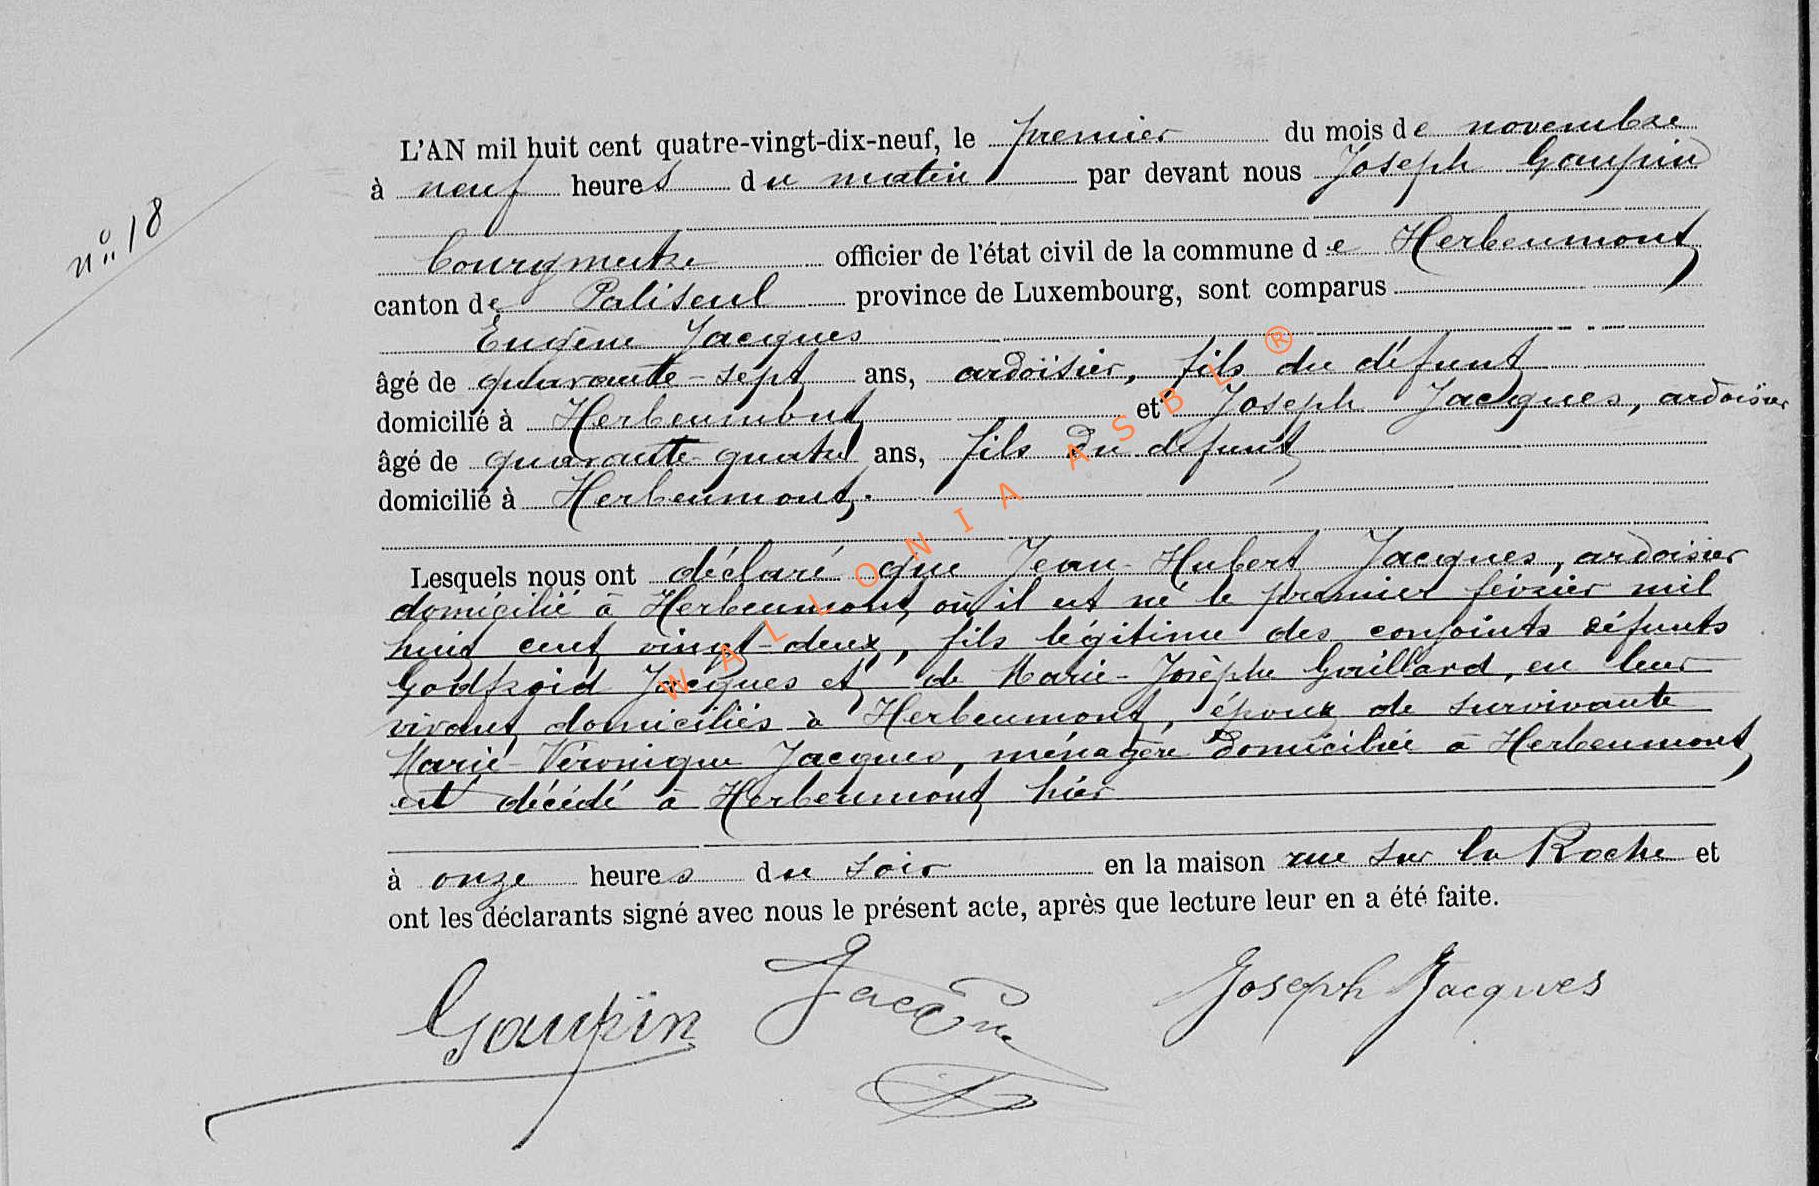 L'AN mil huit cent quatre-vingt-dix-neuf, le premier du mois de novembre
à neuf heures du matin par devant nous Joseph Gaupin
nº 18
bourgmestre officier de l'état civil de la commune de Herbeumont
canton de Paliseul province de Luxembourg, sont comparus
Eugène Jacques
âgé de quarante-sept ans, ardoisier, fils du défunt
domicilié à Herbeumont et Joseph Jacques, ardoisier
âgé de quarante-quatre ans, fils du défunt
domicilié à Herbeumont.
Lesquels nous ont déclaré que Jean-Hubert Jacques, ardoisier
domicilié à Herbeumont, où il est né le premier février mil
huit cent vingt-deux, fils légitime des conjoints défunts
Godfroid Jacques et de Marie-Josèphe Guillard, en leur
vivant domiciliés à Herbeumont, époux de survivante
Marie-Véronique Jacques, ménagère domiciliée à Herbeumont
est décédé à Herbeumont hier
à onze heures du soir en la maison rue sur la Roche et
ont les déclarants signé avec nous le présent acte, après que lecture leur en a été faite.
Gaupin Jacques Joseph Jacques
WALLONIA ASBL ®